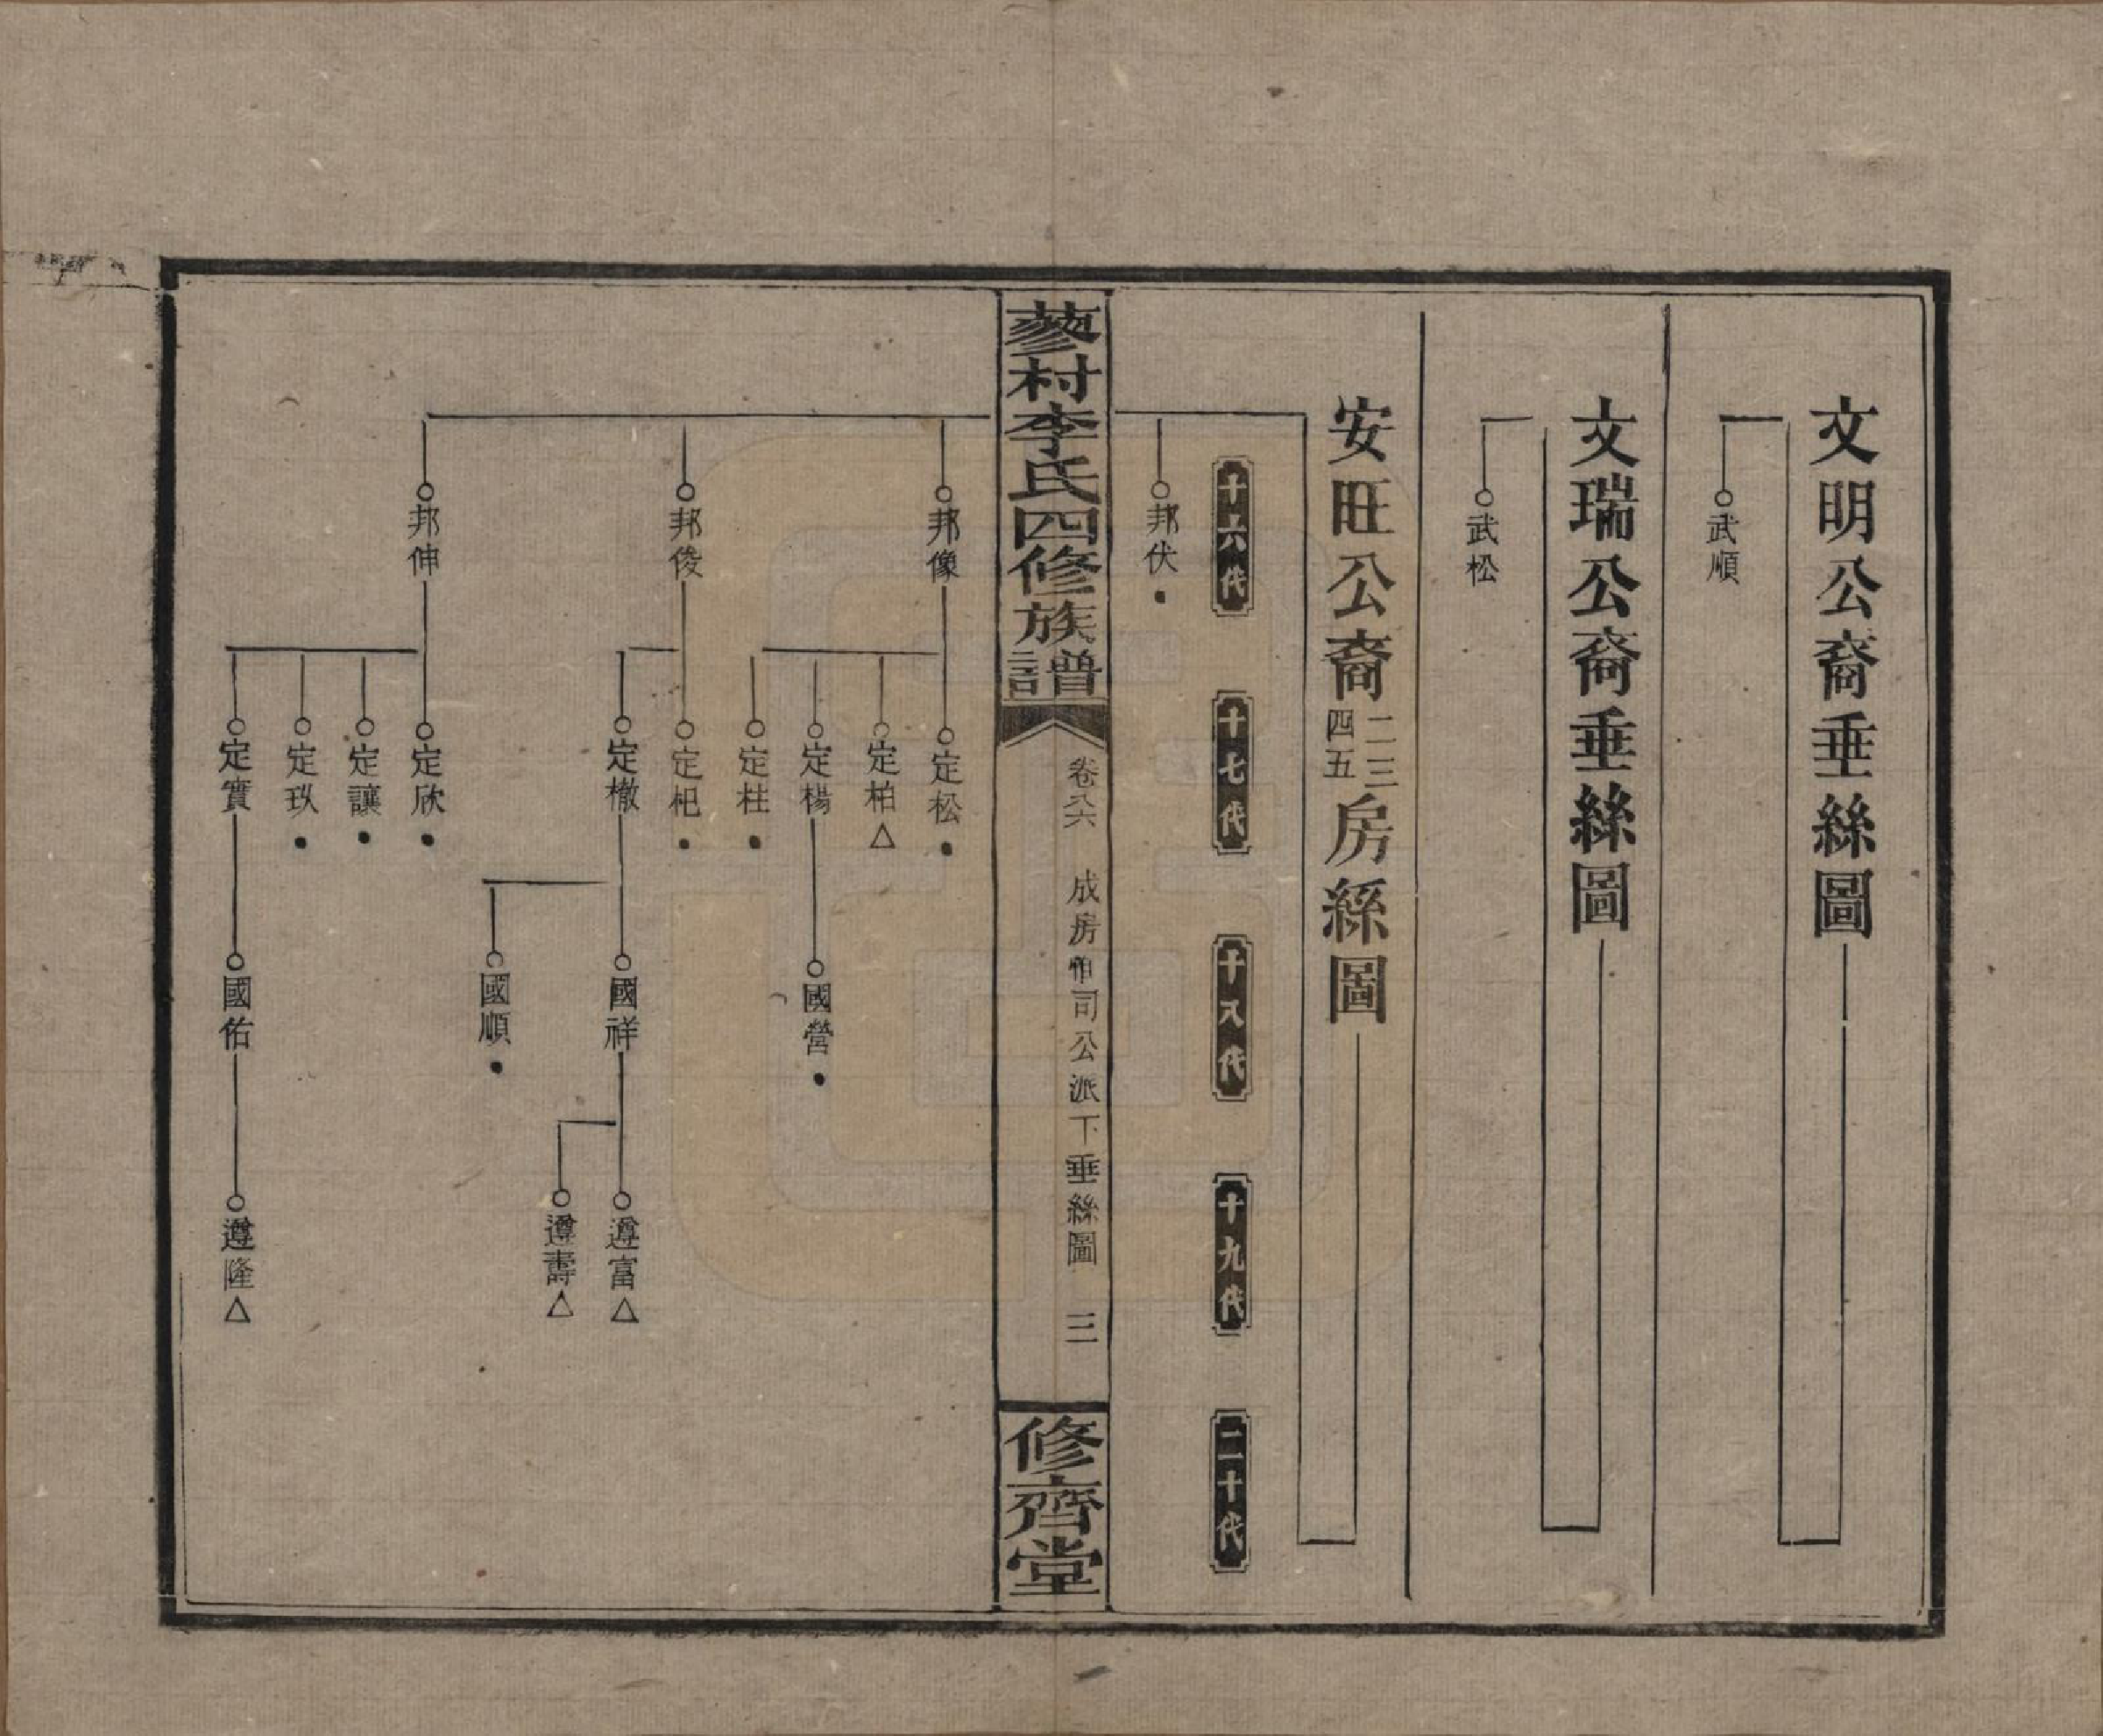 文明公裔垂絲圖
武順
文瑞公裔垂絲圖
武松
安旺公裔二三四五房絲圖
十六代
十七代
十八代
十九代
二十代
邦伏
蓼村李氏四修族譜
卷六 成房 司公派下垂絲圖 三
修齊堂
邦像
定松
定柏
定楊
國營
定柱
邦俊
定杞
定檄
國祥
遵富
遵壽
國順
邦伸
定欣
定讓
定玖
定寶
國佑
遵隆